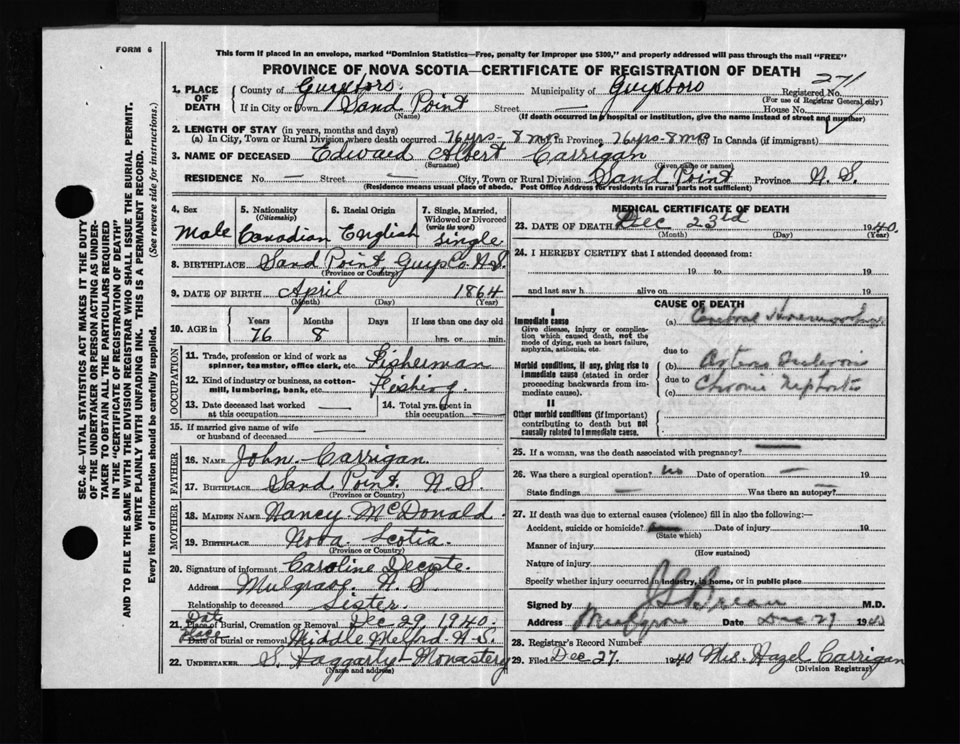 FORM 6
This form if placed in an envelope, marked "Dominion Statistics—Free, penalty for improper use $300," and properly addressed will pass through the mail "FREE"
PROVINCE OF NOVA SCOTIA—CERTIFICATE OF REGISTRATION OF DEATH
1. PLACE OF DEATH County of Guysboro Municipality of Guysboro Registered No. 271
(For use of Registrar General only)
If in City or Town Sand Point Street — House No. —
(Name) (If death occurred in a hospital or institution, give the name instead of street and number)
2. LENGTH OF STAY (in years, months and days)
(a) In City, Town or Rural Division where death occurred 76 yrs - 8 mos In Province 76 yrs - 8 mos (c) In Canada (if immigrant)
3. NAME OF DECEASED Edward Albert Carrigan
(Surname) (Given name or names)
RESIDENCE No. — Street — City, Town or Rural Division Sand Point Province N. S.
(Residence means usual place of abode. Post Office Address for residents in rural parts not sufficient)
4. Sex Male
5. Nationality (Citizenship) Canadian
6. Racial Origin English
7. Single, Married, Widowed or Divorced (write the word) Single
8. BIRTHPLACE Sand Point, Guys Co. N.S.
(Province or Country)
9. DATE OF BIRTH April 1864
(Month) (Day) (Year)
10. AGE in Years Months Days If less than one day old
76 8 hrs. or min.
OCCUPATION
11. Trade, profession or kind of work as spinner, teamster, office clerk, etc. Fisherman
12. Kind of industry or business, as cotton-mill, lumbering, bank, etc.
13. Date deceased last worked at this occupation —
14. Total yrs. spent in this occupation —
15. If married give name of wife or husband of deceased —
FATHER
16. NAME John Carrigan
17. BIRTHPLACE Sand Point N. S.
(Province or Country)
MOTHER
18. MAIDEN NAME Nancy McDonald
19. BIRTHPLACE Nova Scotia
(Province or Country)
20. Signature of informant Caroline Decoste
Address Mulgrave N. S.
Relationship to deceased Sister
21. Date Place of Burial, Cremation or Removal Dec 29, 1940
Place Date of burial or removal Middle Melford N. S.
22. UNDERTAKER S. Haggarty - Monastery
(Name and address)
MEDICAL CERTIFICATE OF DEATH
23. DATE OF DEATH Dec 23rd 1940
(Month) (Day) (Year)
24. I HEREBY CERTIFY that I attended deceased from:
19 to 19
and last saw h alive on 19
CAUSE OF DEATH
I
Immediate cause
Give disease, injury or complication which caused death, not the mode of dying, such as heart failure, asphyxia, asthenia, etc.
(a) Cerebral
due to
Morbid conditions, if any, giving rise to immediate cause (stated in order proceeding backwards from immediate cause).
(b)
due to
(c) Chronic Nephritis
II
Other morbid conditions (if important) contributing to death but not causally related to immediate cause.
25. If a woman, was the death associated with pregnancy? —
26. Was there a surgical operation? No Date of operation —
State findings — Was there an autopsy? —
27. If death was due to external causes (violence) fill in also the following:—
Accident, suicide or homicide? Date of injury 19
(State which)
Manner of injury
(How sustained)
Nature of injury
Specify whether injury occurred in industry, in home, or in public place
Signed by M.D.
Address Mulgrave Date Dec 27 1940
28. Registrar's Record Number
29. Filed Dec 27. 1940 Mrs. Hazel Carrigan
(Division Registrar)
SEC. 46—VITAL STATISTICS ACT MAKES IT THE DUTY
OF THE UNDERTAKER OR PERSON ACTING AS UNDER-
TAKER TO OBTAIN ALL THE PARTICULARS REQUIRED
IN THE "CERTIFICATE OF REGISTRATION OF DEATH"
AND TO FILE THE SAME WITH THE DIVISION REGISTRAR WHO SHALL ISSUE THE BURIAL PERMIT.
WRITE PLAINLY WITH UNFADING INK. THIS IS A PERMANENT RECORD.
Every item of Information should be carefully supplied. (See reverse side for instructions.)